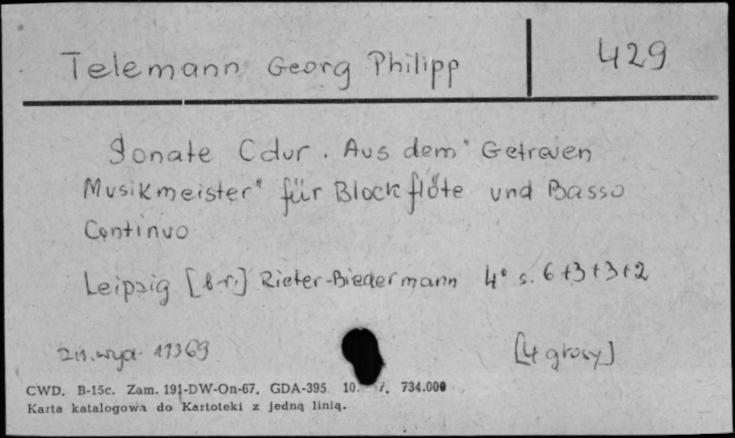 Telemann Georg Philipp 429
Sonate Cdur. Aus dem "Getreuen
Musikmeister" für Blockflöte und Basso
Continuo
Leipzig [b.r.] Rieter-Biedermann 4° s. 6+3+3+2
zn. wyd. 11369 [4 głosy]
CWD. B-15c. Zam. 191-DW-On-67. GDA-395 10. 734.000
Karta katalogowa do Kartoteki z jedną linią.